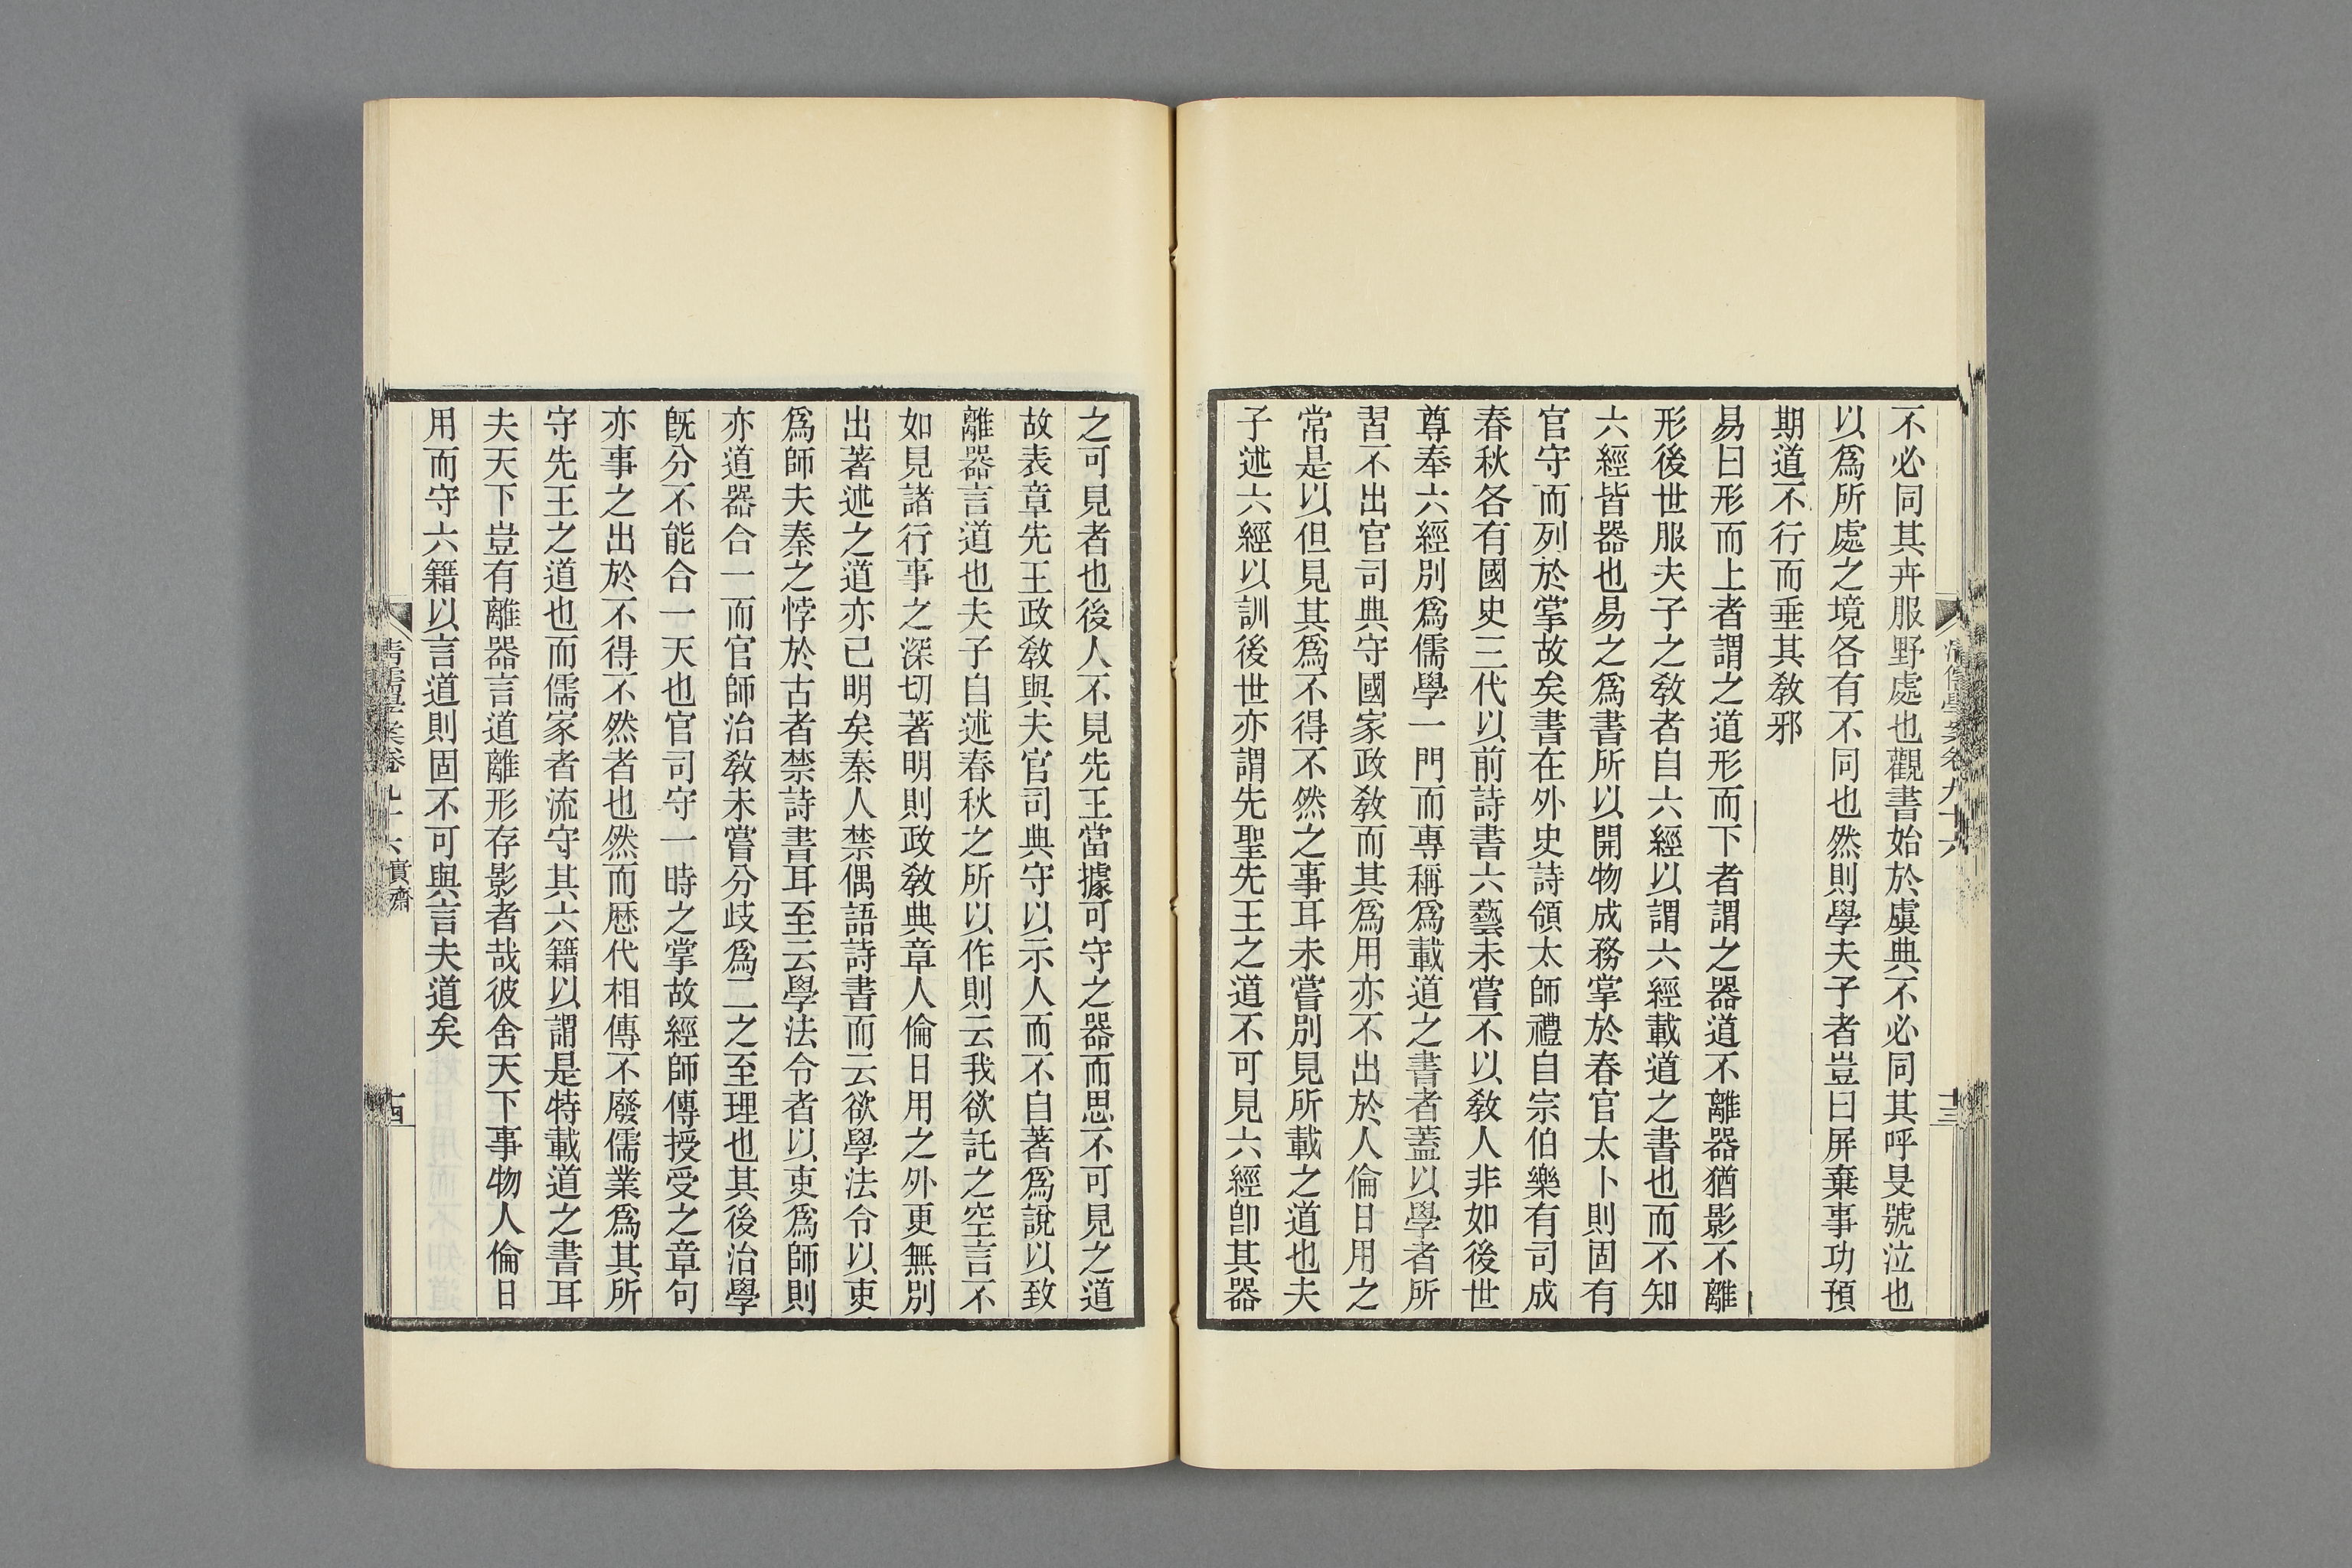 不必同其卉服野處也觀書始於虞典不必同其呼旻號泣也
以爲所處之境各有不同也然則學夫子者豈曰屏棄事功預
期道不行而垂其敎邪
易曰形而上者謂之道形而下者謂之器道不離器猶影不離
形後世服夫子之敎者自六經以謂六經載道之書也而不知
六經皆器也易之爲書所以開物成務掌於春官太卜則固有
官守而列於掌故矣書在外史詩領太師禮自宗伯樂有司成
春秋各有國史三代以前詩書六藝未嘗不以敎人非如後世
尊奉六經別爲儒學一門而專稱爲載道之書者蓋以學者所
習不出官司典守國家政敎而其爲用亦不出於人倫日用之
常是以但見其爲不得不然之事耳未嘗別見所載之道也夫
子述六經以訓後世亦謂先聖先王之道不可見六經卽其器
之可見者也後人不見先王當據可守之器而思不可見之道
故表章先王政敎與夫官司典守以示人而不自著爲說以致
離器言道也夫子自述春秋之所以作則云我欲託之空言不
如見諸行事之深切著明則政敎典章人倫日用之外更無別
出著述之道亦已明矣秦人禁偶語詩書而云欲學法令以吏
爲師夫秦之悖於古者禁詩書耳至云學法令者以吏爲師則
亦道器合一而官師治敎未嘗分歧爲二之至理也其後治學
旣分不能合一天也官司守一時之掌故經師傳授受之章句
亦事之出於不得不然者也然而歷代相傳不廢儒業爲其所
守先王之道也而儒家者流守其六籍以謂是特載道之書耳
夫天下豈有離器言道離形存影者哉彼舍天下事物人倫日
用而守六籍以言道則固不可與言夫道矣
清儒學案卷九十六
十三
清儒學案卷九十六 實齋
十四